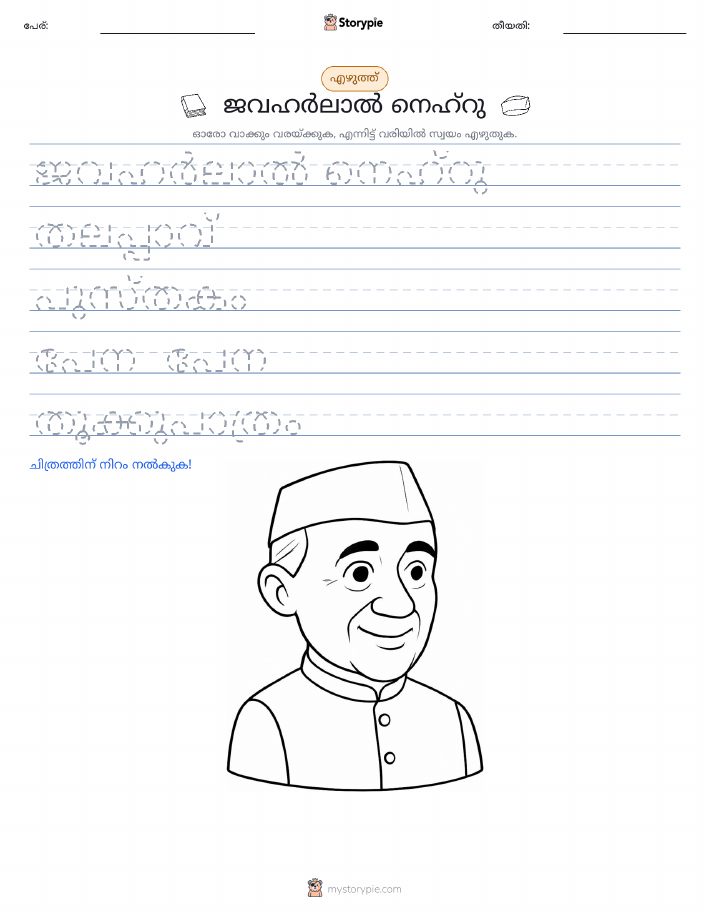 പേര്:
Storypie
തീയതി:
എഴുത്ത്
ജവഹർലാൽ നെഹ്റു
ഓരോ വാക്കും വരയ്ക്കുക, എന്നിട്ട് വരിയിൽ സ്വയം എഴുതുക.
ജവഹർലാൽ നെഹ്റു
തലപ്പാവ്
പുസ്തകം
പേന പേന
തൂക്കുപാത്രം
ചിത്രത്തിന് നിറം നൽകുക!
mystorypie.com